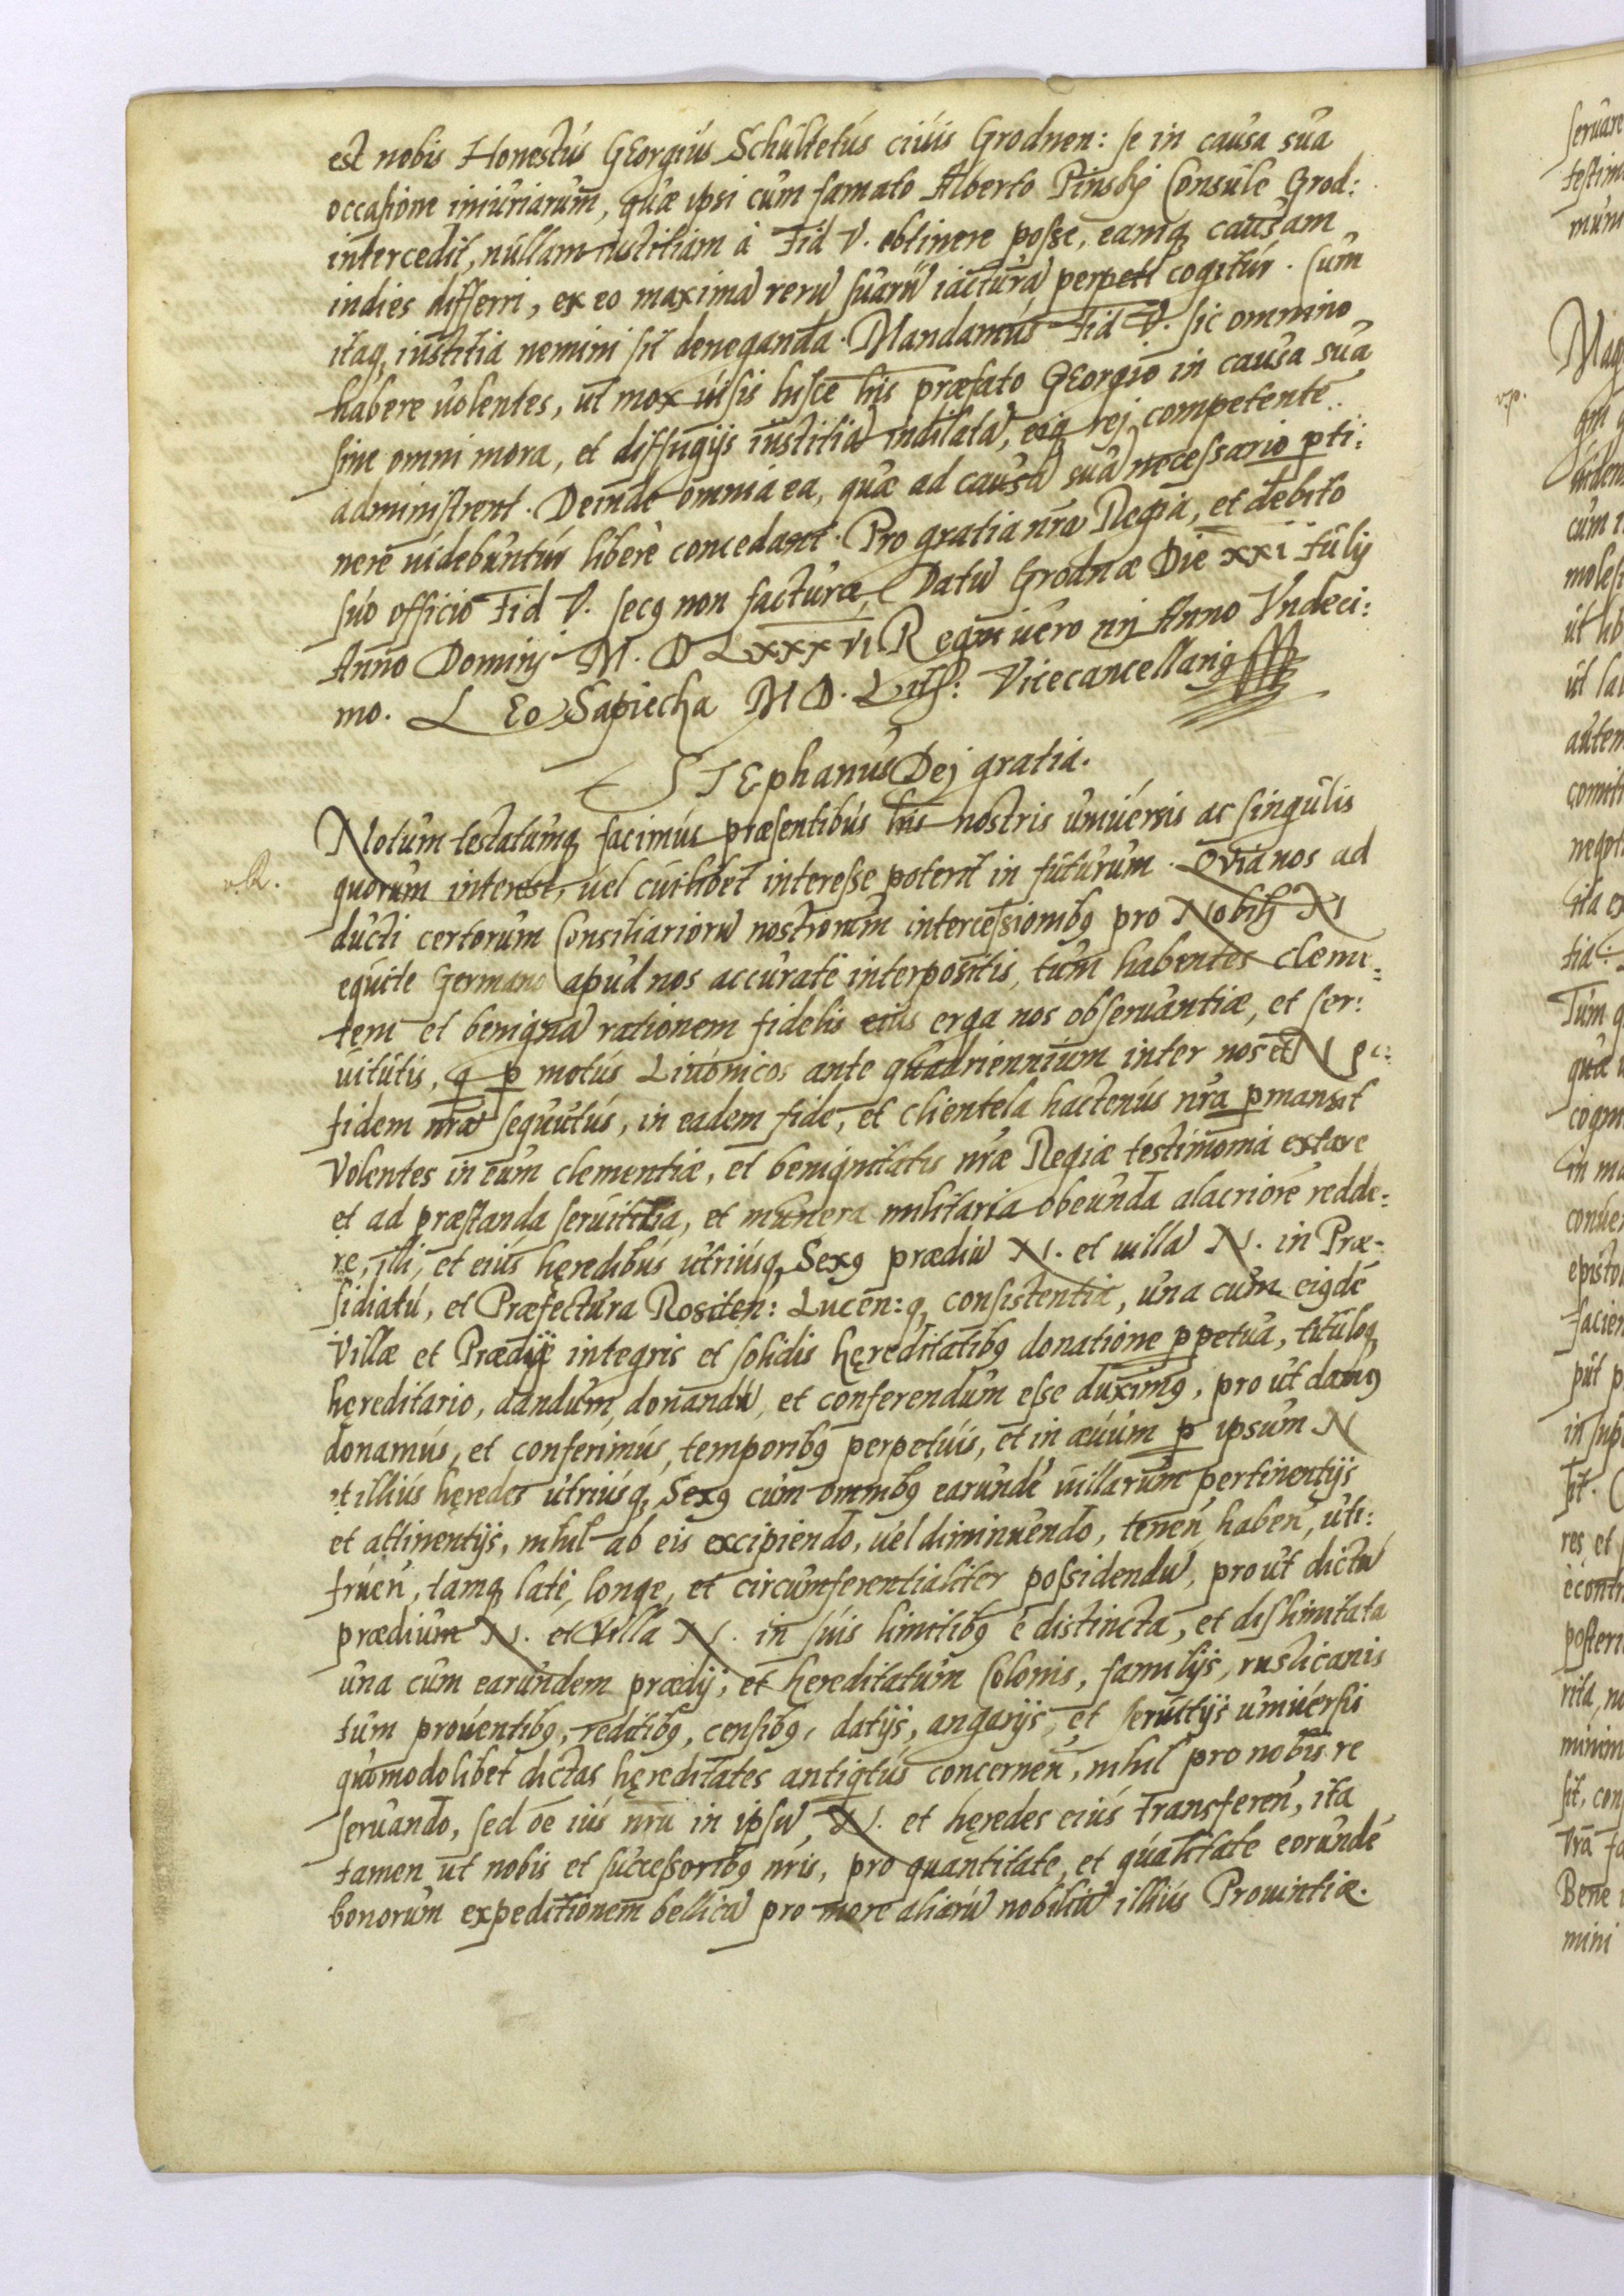 est nobis Honestus GEorgius Schultetus ciuis Grodnen: se in causa sua
occasione iniuriarum, quæ ipsi cum famato Alberto Pinsky Consule Grod:
intercedit, nullam iustitiam à Fid V. obtinere posse, eamq causam
indies differri, ex eo maximã rerũ suarũ iacturã perpeti cogitur. Cum
itaq iustitia nemini sit deneganda. Mandamus Fid V. sic omnino
habere uolentes, ut mox uisis hisce lris præfato GEorgio in causa sua
sine omni mora, et diffugijs iustitiã indilatã, eiq rej competentẽ
administrent. Deinde omnia ea, quæ ad causã suã necessario pti:
nere uidebuntur liberè concedant. Pro gratia nrã Regia, et debito
suo officio Fid V. secq non facturæ. Datũ Grodnæ Die XXI Iulij
Anno Dominj M. D LXXXVI. Regni uero nrj Anno Vndeci:
mo. LEo Sapiecha M D. Lith: Vicecancellariq
STEphanus Dej gratia.
Notum testatumq facimus præsentibus lris nostris uniuersis ac singulis
quorum interest, uel cuilibet interesse poterit in futurum. Qvia nos ad
ducti certorum Consiliariorũ nostrorum intercessionibq pro Nobili N
equite Germano apud nos accuratè interpositis, tum habentes cleme:
tem et benignã rationem fidelis eius erga nos obseruantiæ, et ser:
uitutis, q p motus Liuonicos ante quadriennium inter nos et N ec:
fidem nrã sequutus, in eadem fide, et clientela hactenus nra pmansit
Volentes in eum clementiæ, et benignitatis nræ Regiæ testimonia extare
et ad præstanda seruititia, et munera militaria obeunda alacriorẽ redde:
re, illi, et eius hęredibus utriusq Sexq prædiũ N. et uillã N. in Præ-
sidiatu, et Præfectura Rositen: Lucen: q, consistentia, una cum eiqdẽ
Villæ et Prædij integris et solidis hęreditatibq donatione ppetua, tituloq
hęreditario, dandum, donandũ, et conferendum esse duximq, pro ut damq
donamus, et conferimus, temporibq perpetuis, et in æuum p ipsum N
et illius hęredes utriusq Sexq cum omnibq earundẽ uillarum pertinentijs
et attinentijs, nihil ab eis excipiendo, uel diminuendo, tenen, haben, uti:
fruen, tamq latè, longe, et circumferentialiter possidendũ, pro ut dictũ
prædium N. et Villa N. in suis limitibq ẽ distincta, et dislimitata
una cum earundem prædij, et hereditatum Colonis, familijs, rusticanis
tum prouentibq, redditibq, censibq, datijs, angarijs, et seruitijs uniuersis
quomodolibet dictas hęreditates antiqtus concernen, nihil pro nobis re
seruando, sed oẽ ius nrũ in ipsũ N. et hęredes eius transferen, ita
tamen ut nobis et successoribq nris, pro quantitate, et qualitate eorundẽ
bonorum expeditionem bellicã pro more aliarũ nobiliũ illius Prouintiæ.